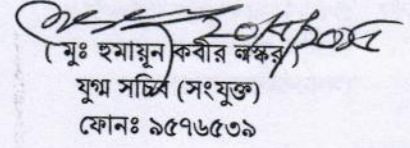 ( মুঃ হুমায়ুন কবীর লস্কর )
যুগ্ম সচিব (সংযুক্ত)
ফোনঃ ৯৫৭৬৫৩৯